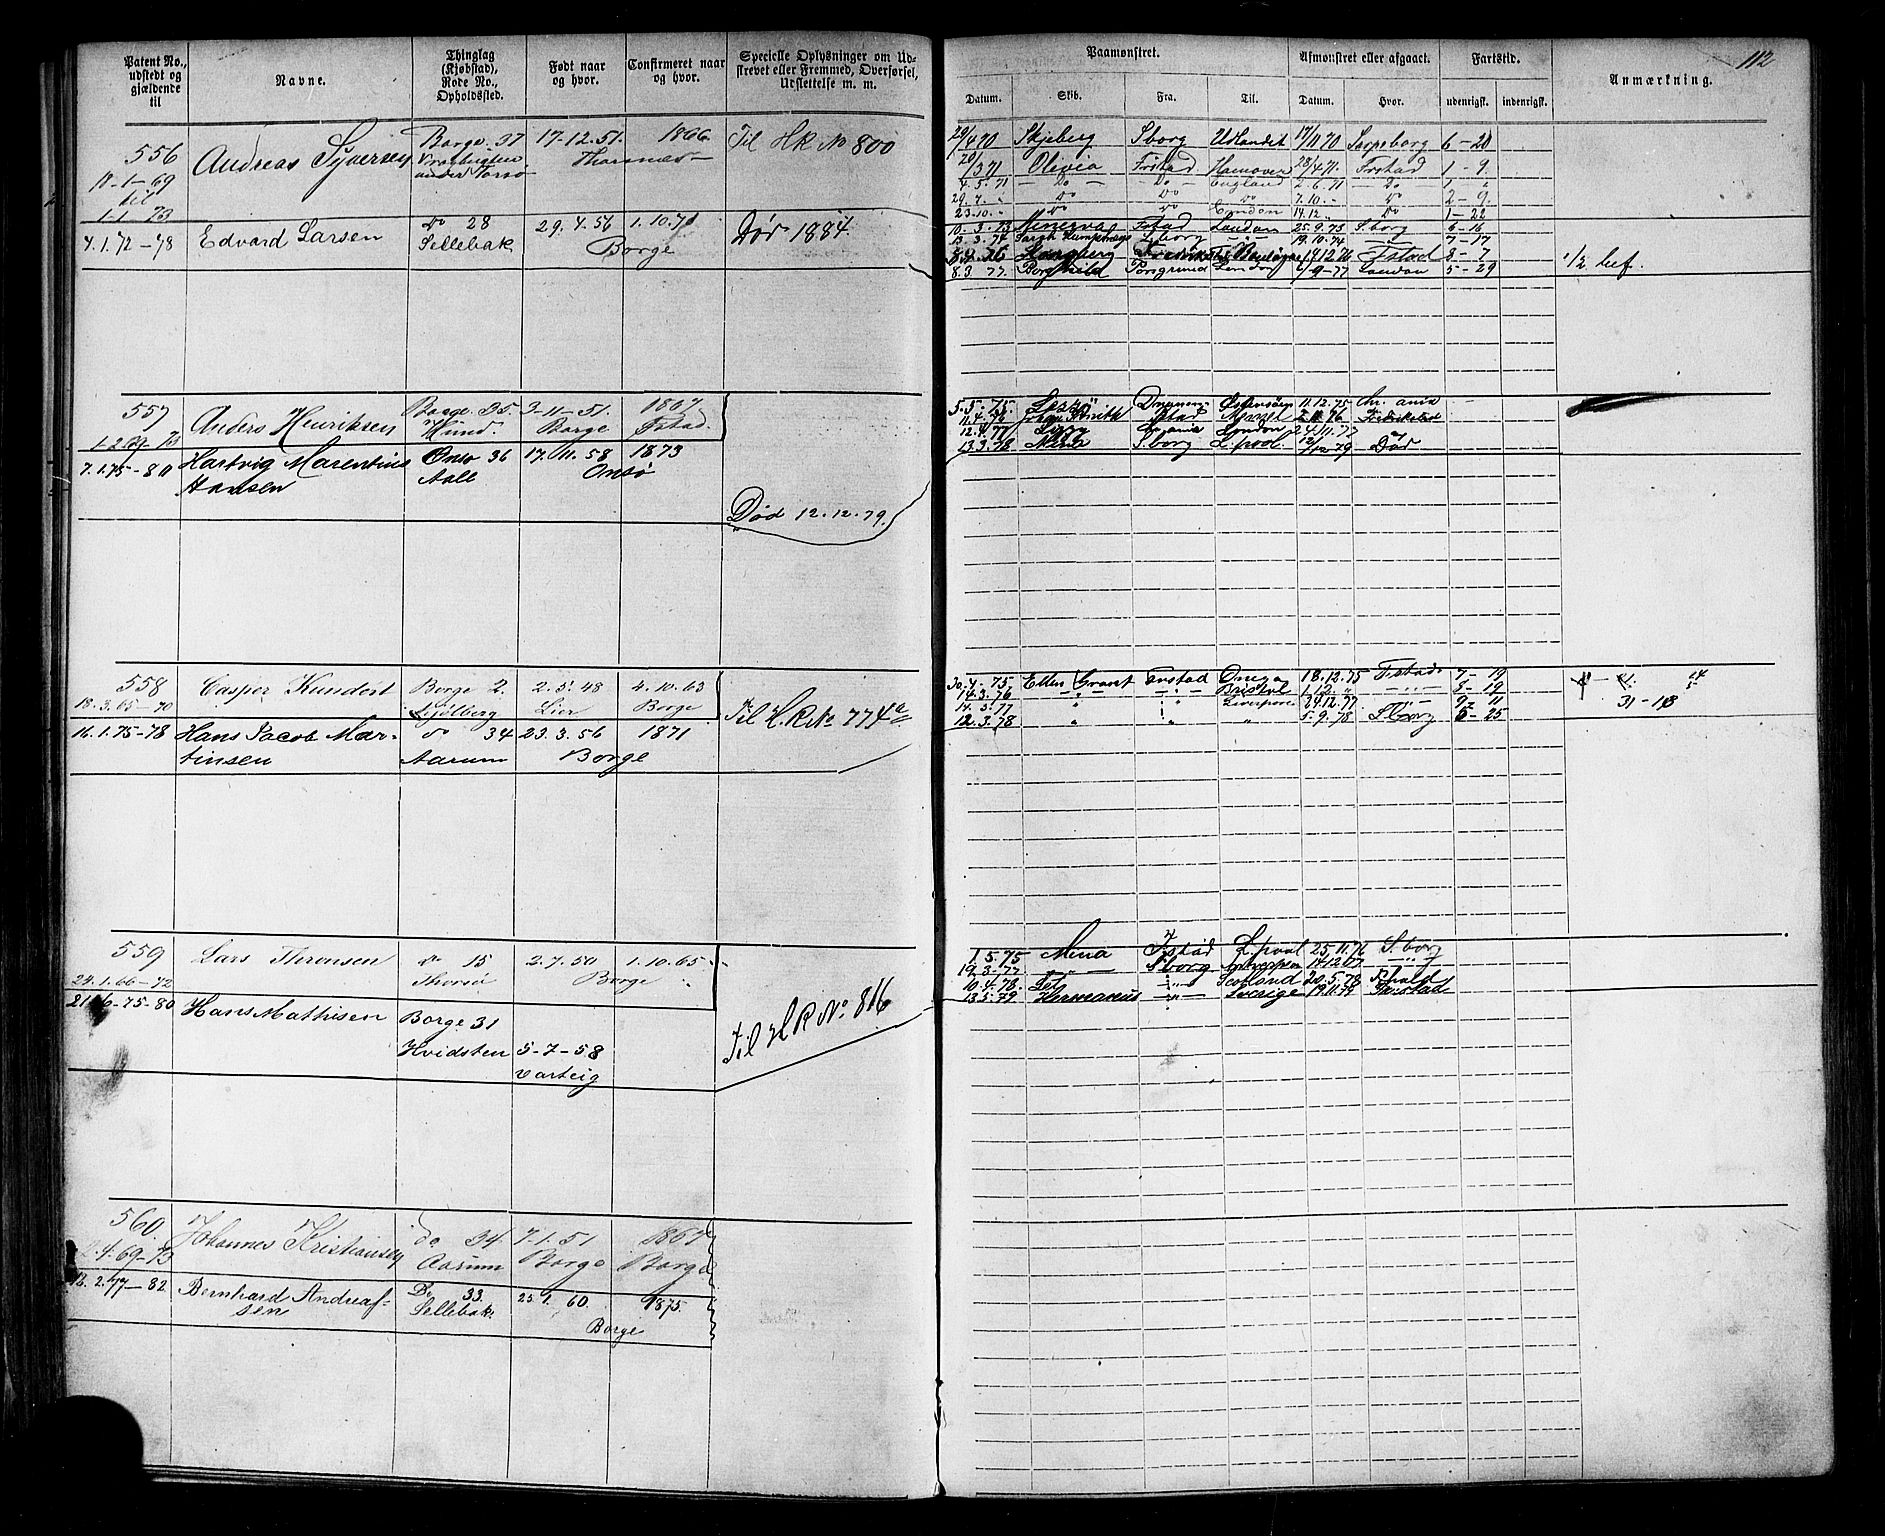 112
Patent No., udstedt og gjældende til
Navne.
Thinglag (Kjøbstad), Rode No., Opholdssted.
Født naar og hvor.
Confirmeret naar og hvor.
Specielle Oplysninger om Udskrevet eller Fremmed, Overførsel, Udslettelse m. m.
Paamønstret.
Afmønstret eller afgaaet.
Fartstid.
Anmærkning.
Datum.
Skib.
Fra.
Til.
Datum.
Hvor.
udenrigsk.
indenrigsk.
556 Andreas Syversen Borge 37 17-12.51. 1866 Til HR No 800
under Torsø
11-1-69
til
1-1-73
4.1.72-78 Edvard Larsen Do 28 29.4.56 1.10.71 Dør 1884
Sellebak Borge
29/4 70 Skjeberg Sborg Udlandet 17/11 70 Sarpsborg 6-20
20/3 71 Olivia Frstad Hannover 28/4 71 Frstad 1-9
4.5.71 Do Do England 2.6.71 Do 1
29.7. Do Do Do 7.10. Do 2-9
23.10. Do Do London 14.12. Do 1-22
10.3.73 Minerva Fstad London 25.9.73 Sborg 6-16
13.3.74 Sborg 19.10.74 7-17
Fstad 8-7
8.3.77 Borghild Porsgrund London 6/9-77 London 5-29 1/2 hef.
557 Anders Henriksen Borge 35. 3-11-51. 1867
Hund. Borge Fstad
7.1.75-80 Hartvig Marentius Onsø 36 17.11.58 1873
Hansen Aale Onsø
Død 12.12.79.
5.5.75. 11.12.75 Chr.ania
Fstad 2.11.76 Fredrikstad
12.4.77 London 24.11.77
13.3.78 Mina S.borg L.pool 12/12 79 Død
558 Casper Kundert Borge 2. 2.5.48 4.10.63
18.3.65-70 Lier Borge
Til H.R No 774 a
16.1.75-78 Hans Jacob Mar- Do 34 23.3.56 1871
tinsen Aarum Borge
30.4.75 Ellen Grant Frstad 18.12.75 Fstad 7-19
14.3.76 " " Bristol 1.12. " 8-19
14.3.77 Liverpool 24.12.77 9-11 31-18
12.3.78 " " " 5.9.78 Sborg 5-25
559 Lars Thronsen Do 15 2.7.50 1.10.65
24.1.66-72 Thorsø Borge "
21/6-75-80 Hans Mathisen Borge 31
Hvidsten 5-7-58
Varteig
Til HR No. 816
1.5.75 Mina Fstad L.pool 25.11.76 S.borg
19.3.77 Sborg Antverpen 14.12.77
10.4.78 Scotland 20.5.78
13.5.79 Hermanus Sverige 19.11.79 Frstad
560 Johannes Kristiansen do 34 7.1.51 1867
4.69-73 Aarum Borge Borge
12.2.77-82 Bernhard Andreas- Do 33. 25.1.60. 1875.
sen Sellebak Borge